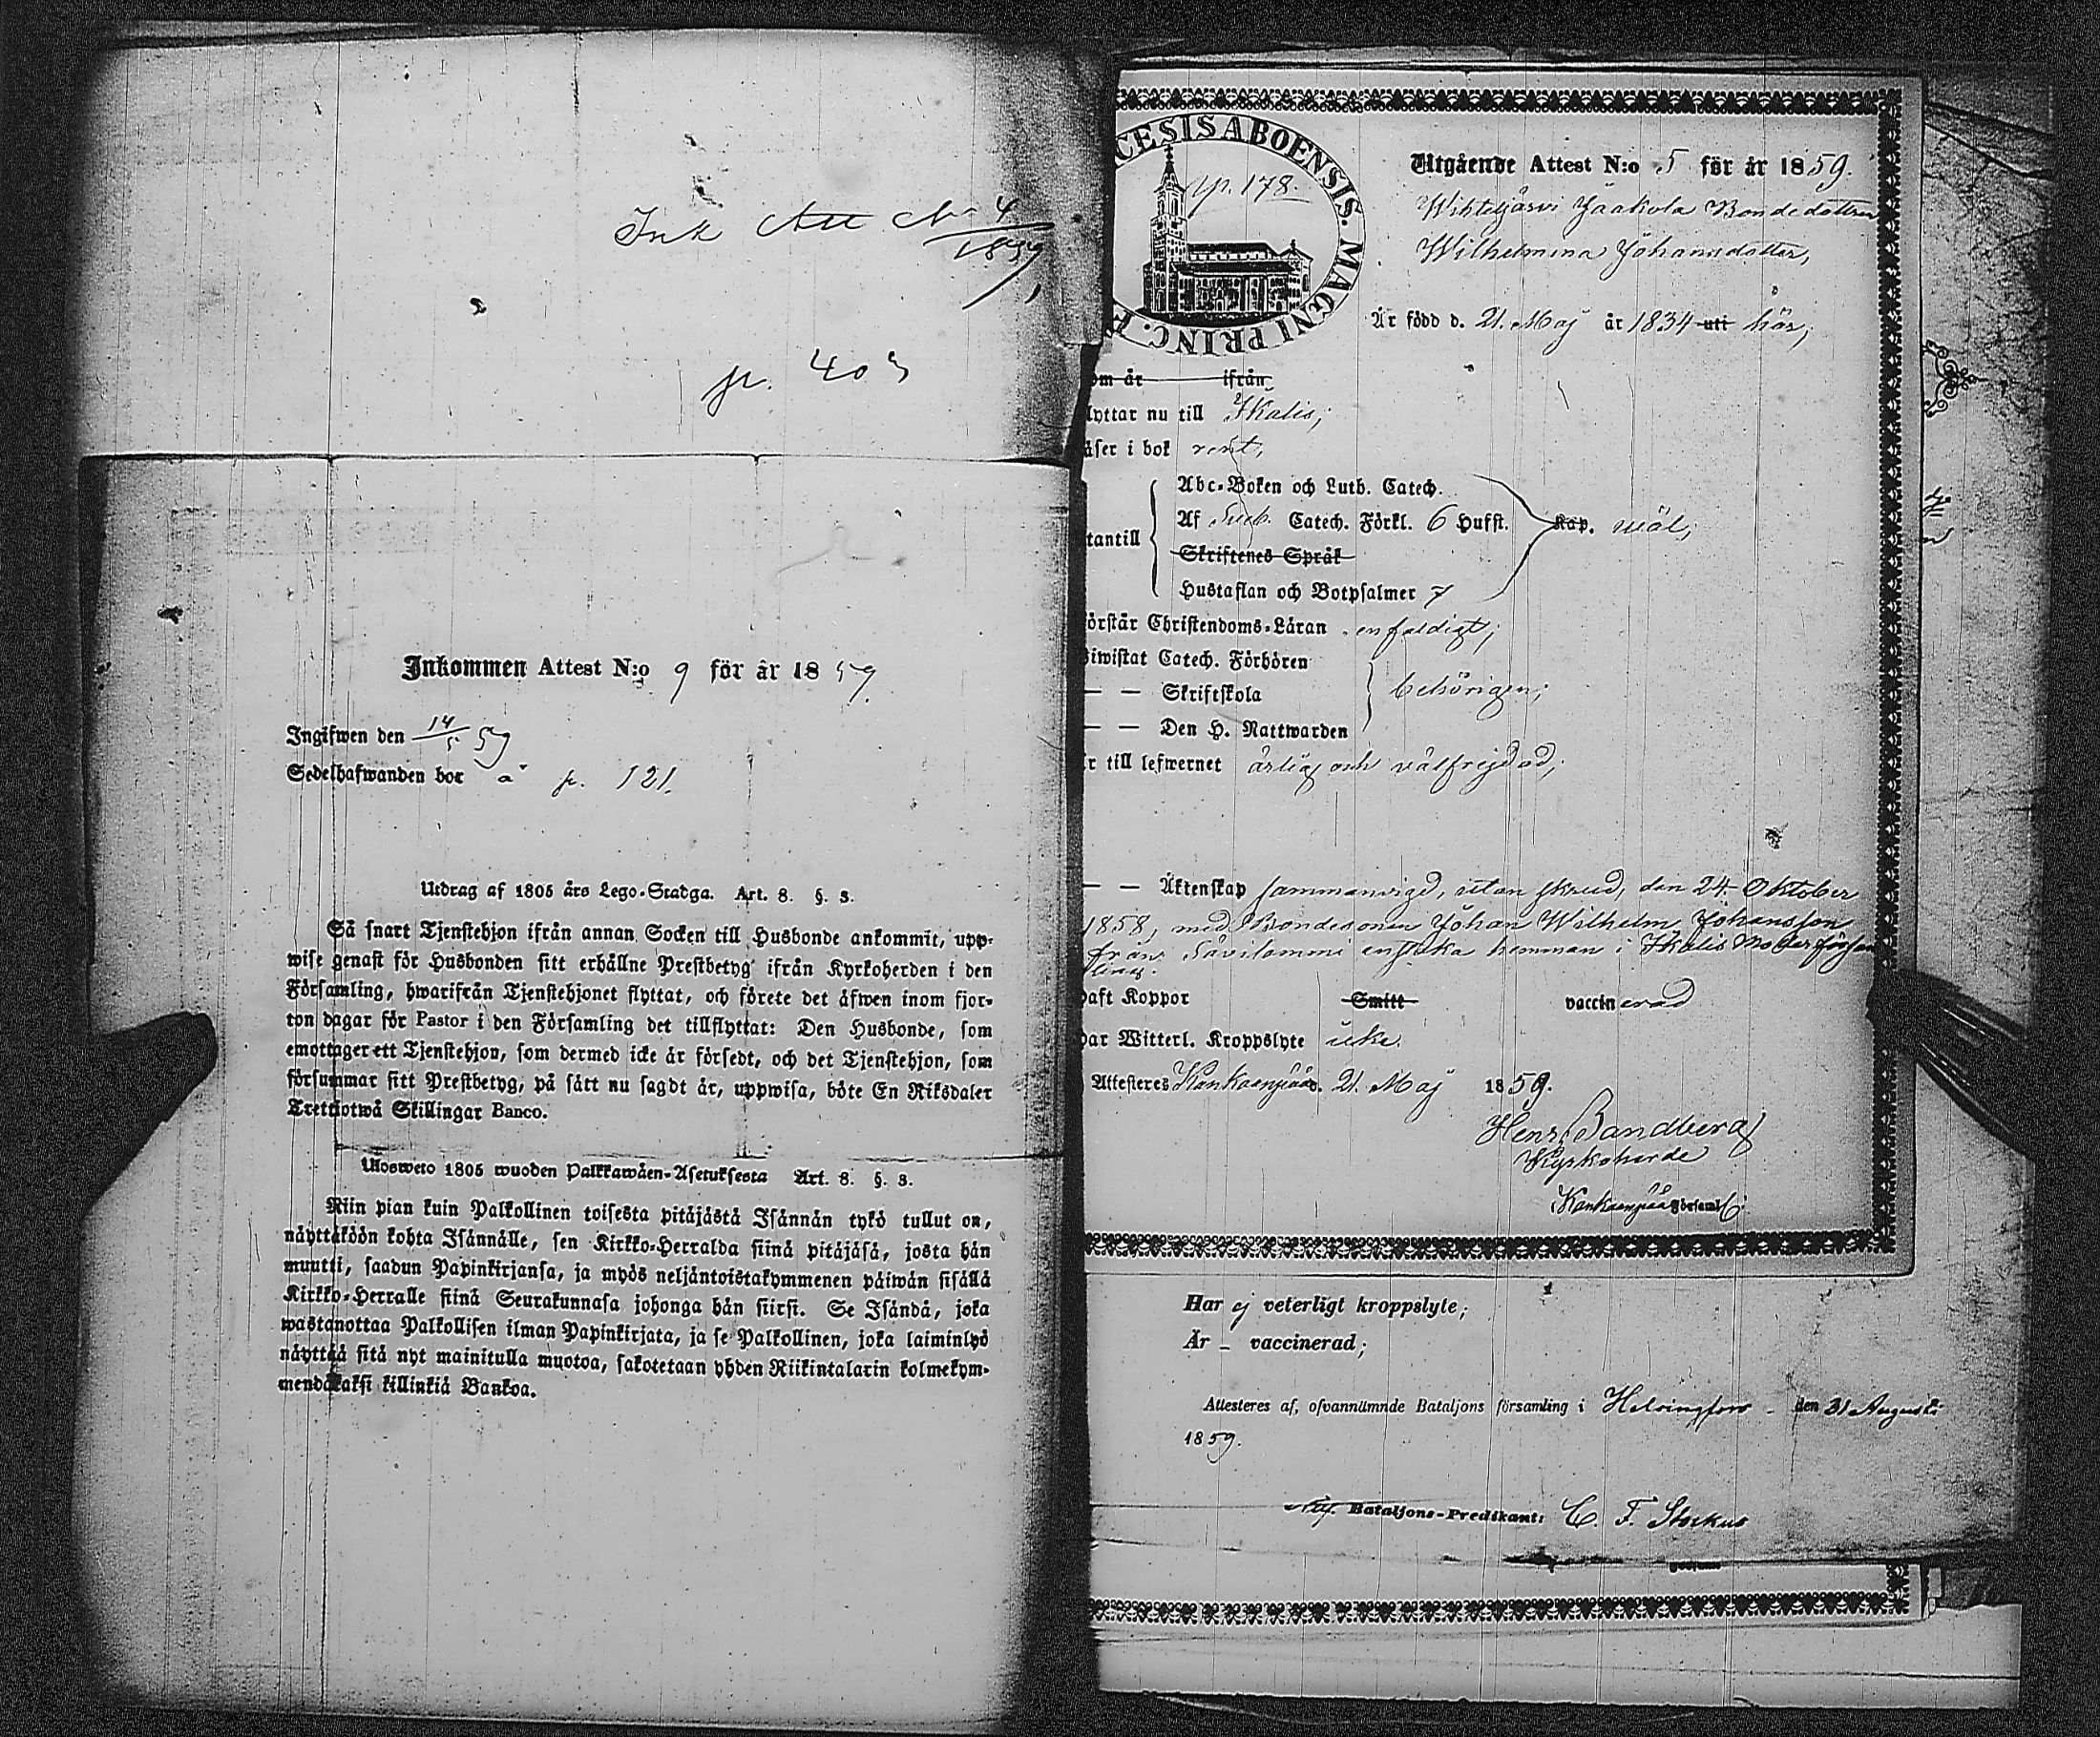 Ink Att No 4
1859
p. 403
Inkommen Attest N:o 9 för år 1859.
Ingifwen den 14/5 59
Sedelhafwanden bor å p. 121.
Utdrag af 1805 års Lego-Stadga. Art. 8. §. 3.
Så snart Tjenstehjon ifrån annan Socken till Husbonde ankommit, upp-
wise genast för Husbonden sitt erhållne Prestbetyg ifrån Kyrkoherden i den
Församling, hwarifrån Tjenstehjonet flyttat, och förete det äfwen inom fjor-
ton dagar för Pastor i den Församling det tillflyttat: Den Husbonde, som
emottager ett Tjenstehjon, som dermed icke är försedt, och det Tjenstehjon, som
försummar sitt Prestbetyg, på sätt nu sagdt är, uppwisa, böte En Riksdaler
Trettiotwå Skillingar Banco.
Ulosweto 1805 wuoden Palkkawäen-Asetuksesta Art. 8. §. 3.
Niin pian kuin Palkollinen toisesta pitäjästä Isännän tykö tullut on,
näyttäköön kohta Isännälle, sen Kirkko-Herralda siinä pitäjäsä, josta hän
muutti, saadun Papinkirjansa, ja myös neljäntoistakymmenen päiwän sisällä
Kirkko-Herralle siinä Seurakunnasa johonga hän siirsi. Se Isändä, joka
wastanottaa Palkollisen ilman Papinkirjata, ja se Palkollinen, joka laiminlyö
näyttää sitä nyt mainitulla muotoa, sakotetaan yhden Riikintalarin kolmekym-
mendäkaksi killinkiä Bankoa.
CESIS ABOENSIS. MAGNI PRINC. F
p. 178.
Utgående Attest N:o 5 för år 1859.
Wihteljärvi Jaakola Bondedottren
Wilhelmina Johansdotter,
Är född d. 21. Maj år 1834 uti här;
om år ifrån
lyttar nu till Ikalis;
äser i bok rent;
Abc-Boken och Luth. Catech.
Af Sveb. Catech. Förkl. 6 Hufst. Kap. wäl;
tantill
Skriftenes Språk
Hustaflan och Botpsalmer 7
örstår Christendoms-Läran enfaldigt;
iwistat Catech. Förhören
— — Skriftskola behörigen;
— — Den H. Nattwarden
r till lefwernet ärlig och välfrejdad;
— — Äktenskap sammanvigd, utan skrud, den 24 Oktober
1858, med Bondesonen Johan Wilhelm Johansson
från Sävilammi enstaka hemman i Ikalis Moderförsam
ling.
haft Koppor Smitt vaccinerad
har Witterl. Kroppslyte icke.
Attesteras Kankaanpää d. 21. Maj 1859.
Henr. Sandberg
Kyrkoherde
i Kankaanpää Församl.
Har ej veterligt kroppslyte;
Är – vaccinerad;
Attesteres af, ofvannämnde Bataljons församling i Helsingfors – den 31 Augusti
1859.
Bataljons-Predikant: C. F. Stockus